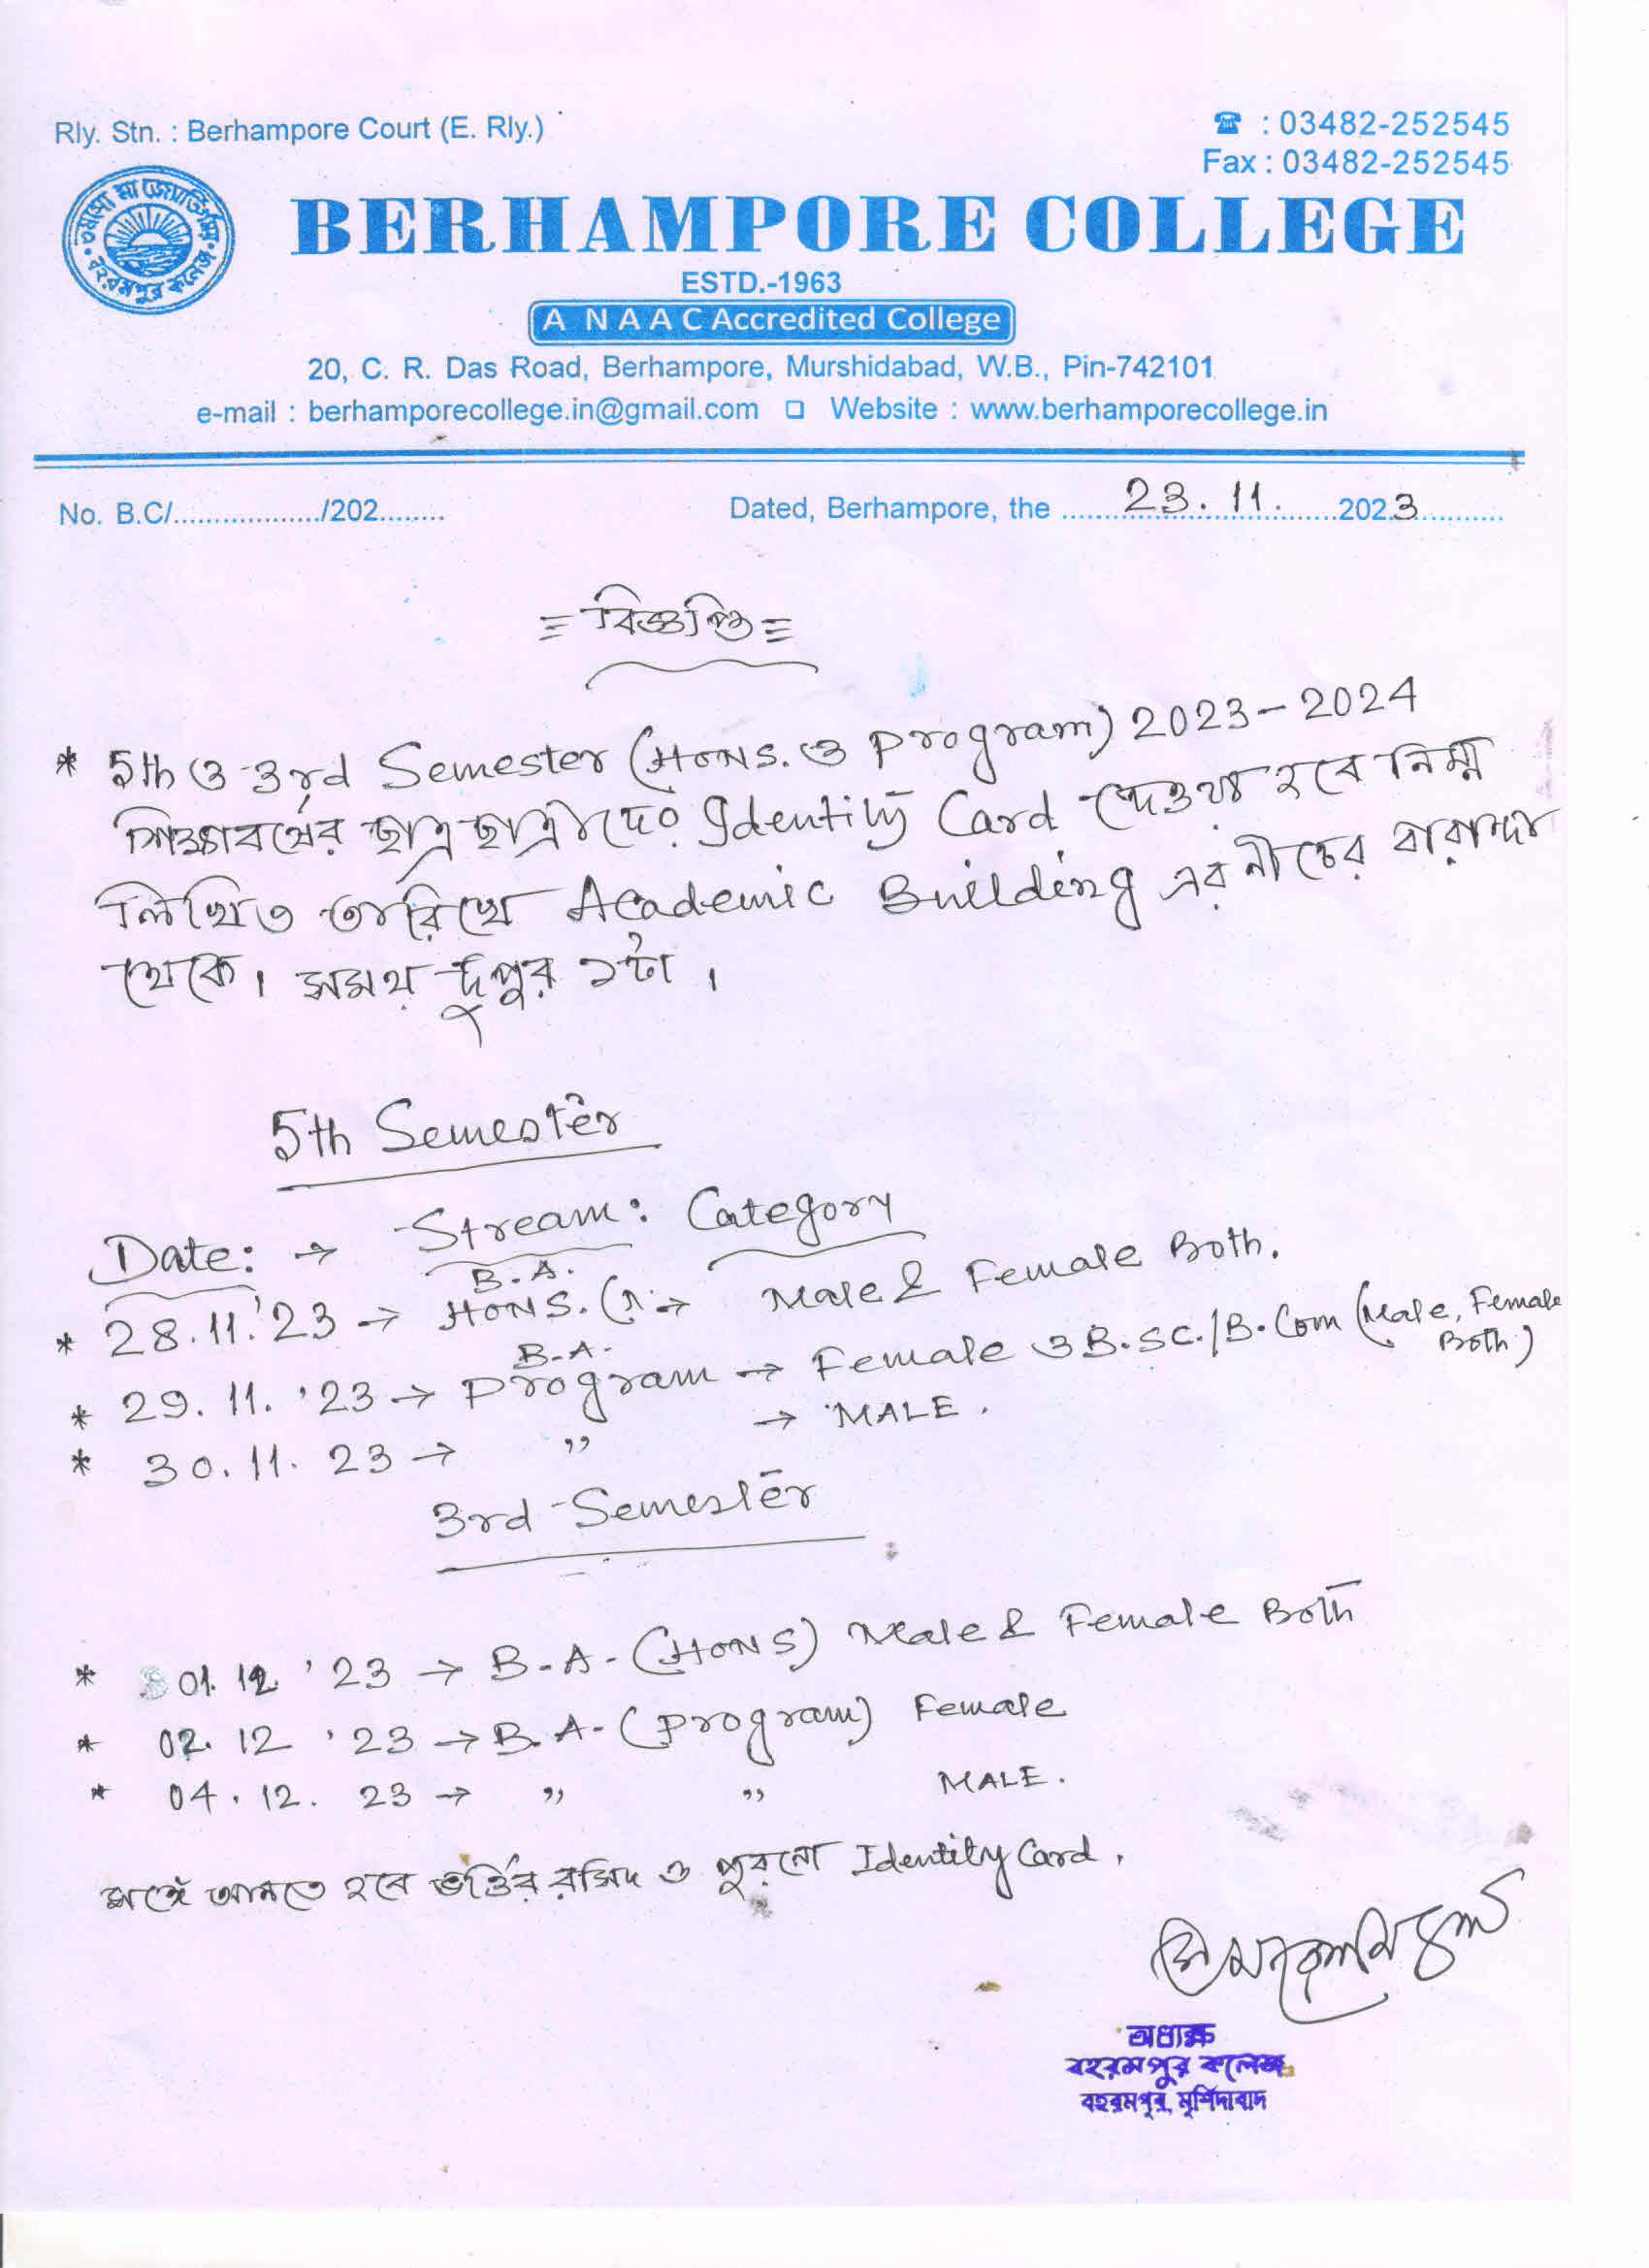 Rly. Stn. : Berhampore Court (E. Rly.)
☎ : 03482-252545
Fax : 03482-252545
তমসো মা জ্যোতির্গময়
বহরমপুর কলেজ
BERHAMPORE COLLEGE
ESTD.-1963
A N A A C Accredited College
20, C. R. Das Road, Berhampore, Murshidabad, W.B., Pin-742101
e-mail : berhamporecollege.in@gmail.com ❑ Website : www.berhamporecollege.in
No. B.C/................../202........
Dated, Berhampore, the ......23.11.......2023..........
= বিজ্ঞপ্তি =
* 5th ও 3rd Semester (HONS. ও Program) 2023-2024
শিক্ষাবর্ষের ছাত্র ছাত্রীদের Identity Card দেওয়া হবে নিম্ন
লিখিত তারিখে Academic Building এর নীচের বারান্দা
থেকে। সময় দুপুর ১টা।
5th Semester
Date: → Stream: Category
B.A.
* 28.11.'23 → HONS. → Male & Female Both.
B.A.
* 29.11.'23 → Program → Female ও B.SC./B.Com (Male, Female Both)
* 30.11.23 → " → MALE.
3rd Semester
* 01.12.'23 → B.A. (HONS) Male & Female Both
* 02.12.'23 → B.A. (Program) Female
* 04.12.23 → " " MALE.
সঙ্গে আনতে হবে ভর্তির রসিদ ও পুরনো Identity Card.
অধ্যক্ষ
বহরমপুর কলেজ
বহরমপুর, মুর্শিদাবাদ